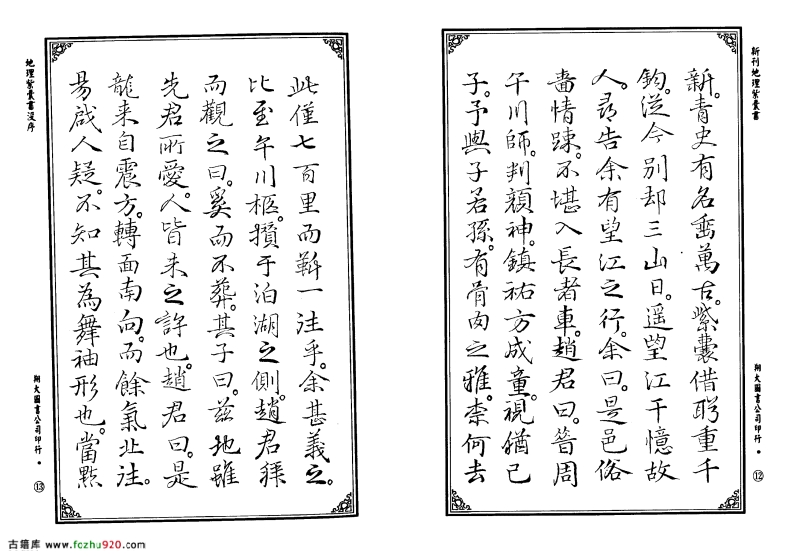 新刊地理紫囊書
新。青史有名垂萬古。紫囊借聆重千
鈞。從今別却三山日。遥望江千憶故
人。尋告余有望江之行。余曰。是邑俗
嗇情踈。不堪入長者車。趙君曰。昝周
午川師。判顏神。鎮祐方成童。視猶己
子。予與子若孫。有骨肉之雅。柰何去
翔大圖書公司印行 • ⑫
此僅七百里而靳一注乎。余甚義之。
比至午川柩。攢于泊湖之側。趙君拜
而觀之曰。奚而不葬。其子曰。茲地雖
先君所愛。人皆未之許也。趙君曰。是
龍来自震方。轉面南向。而餘氣北注。
易啟人疑。不知其為舞袖形也。當點
地理紫囊書没序
翔大圖書公司印行 • ⑬
古籍库 www.fozhu920.com